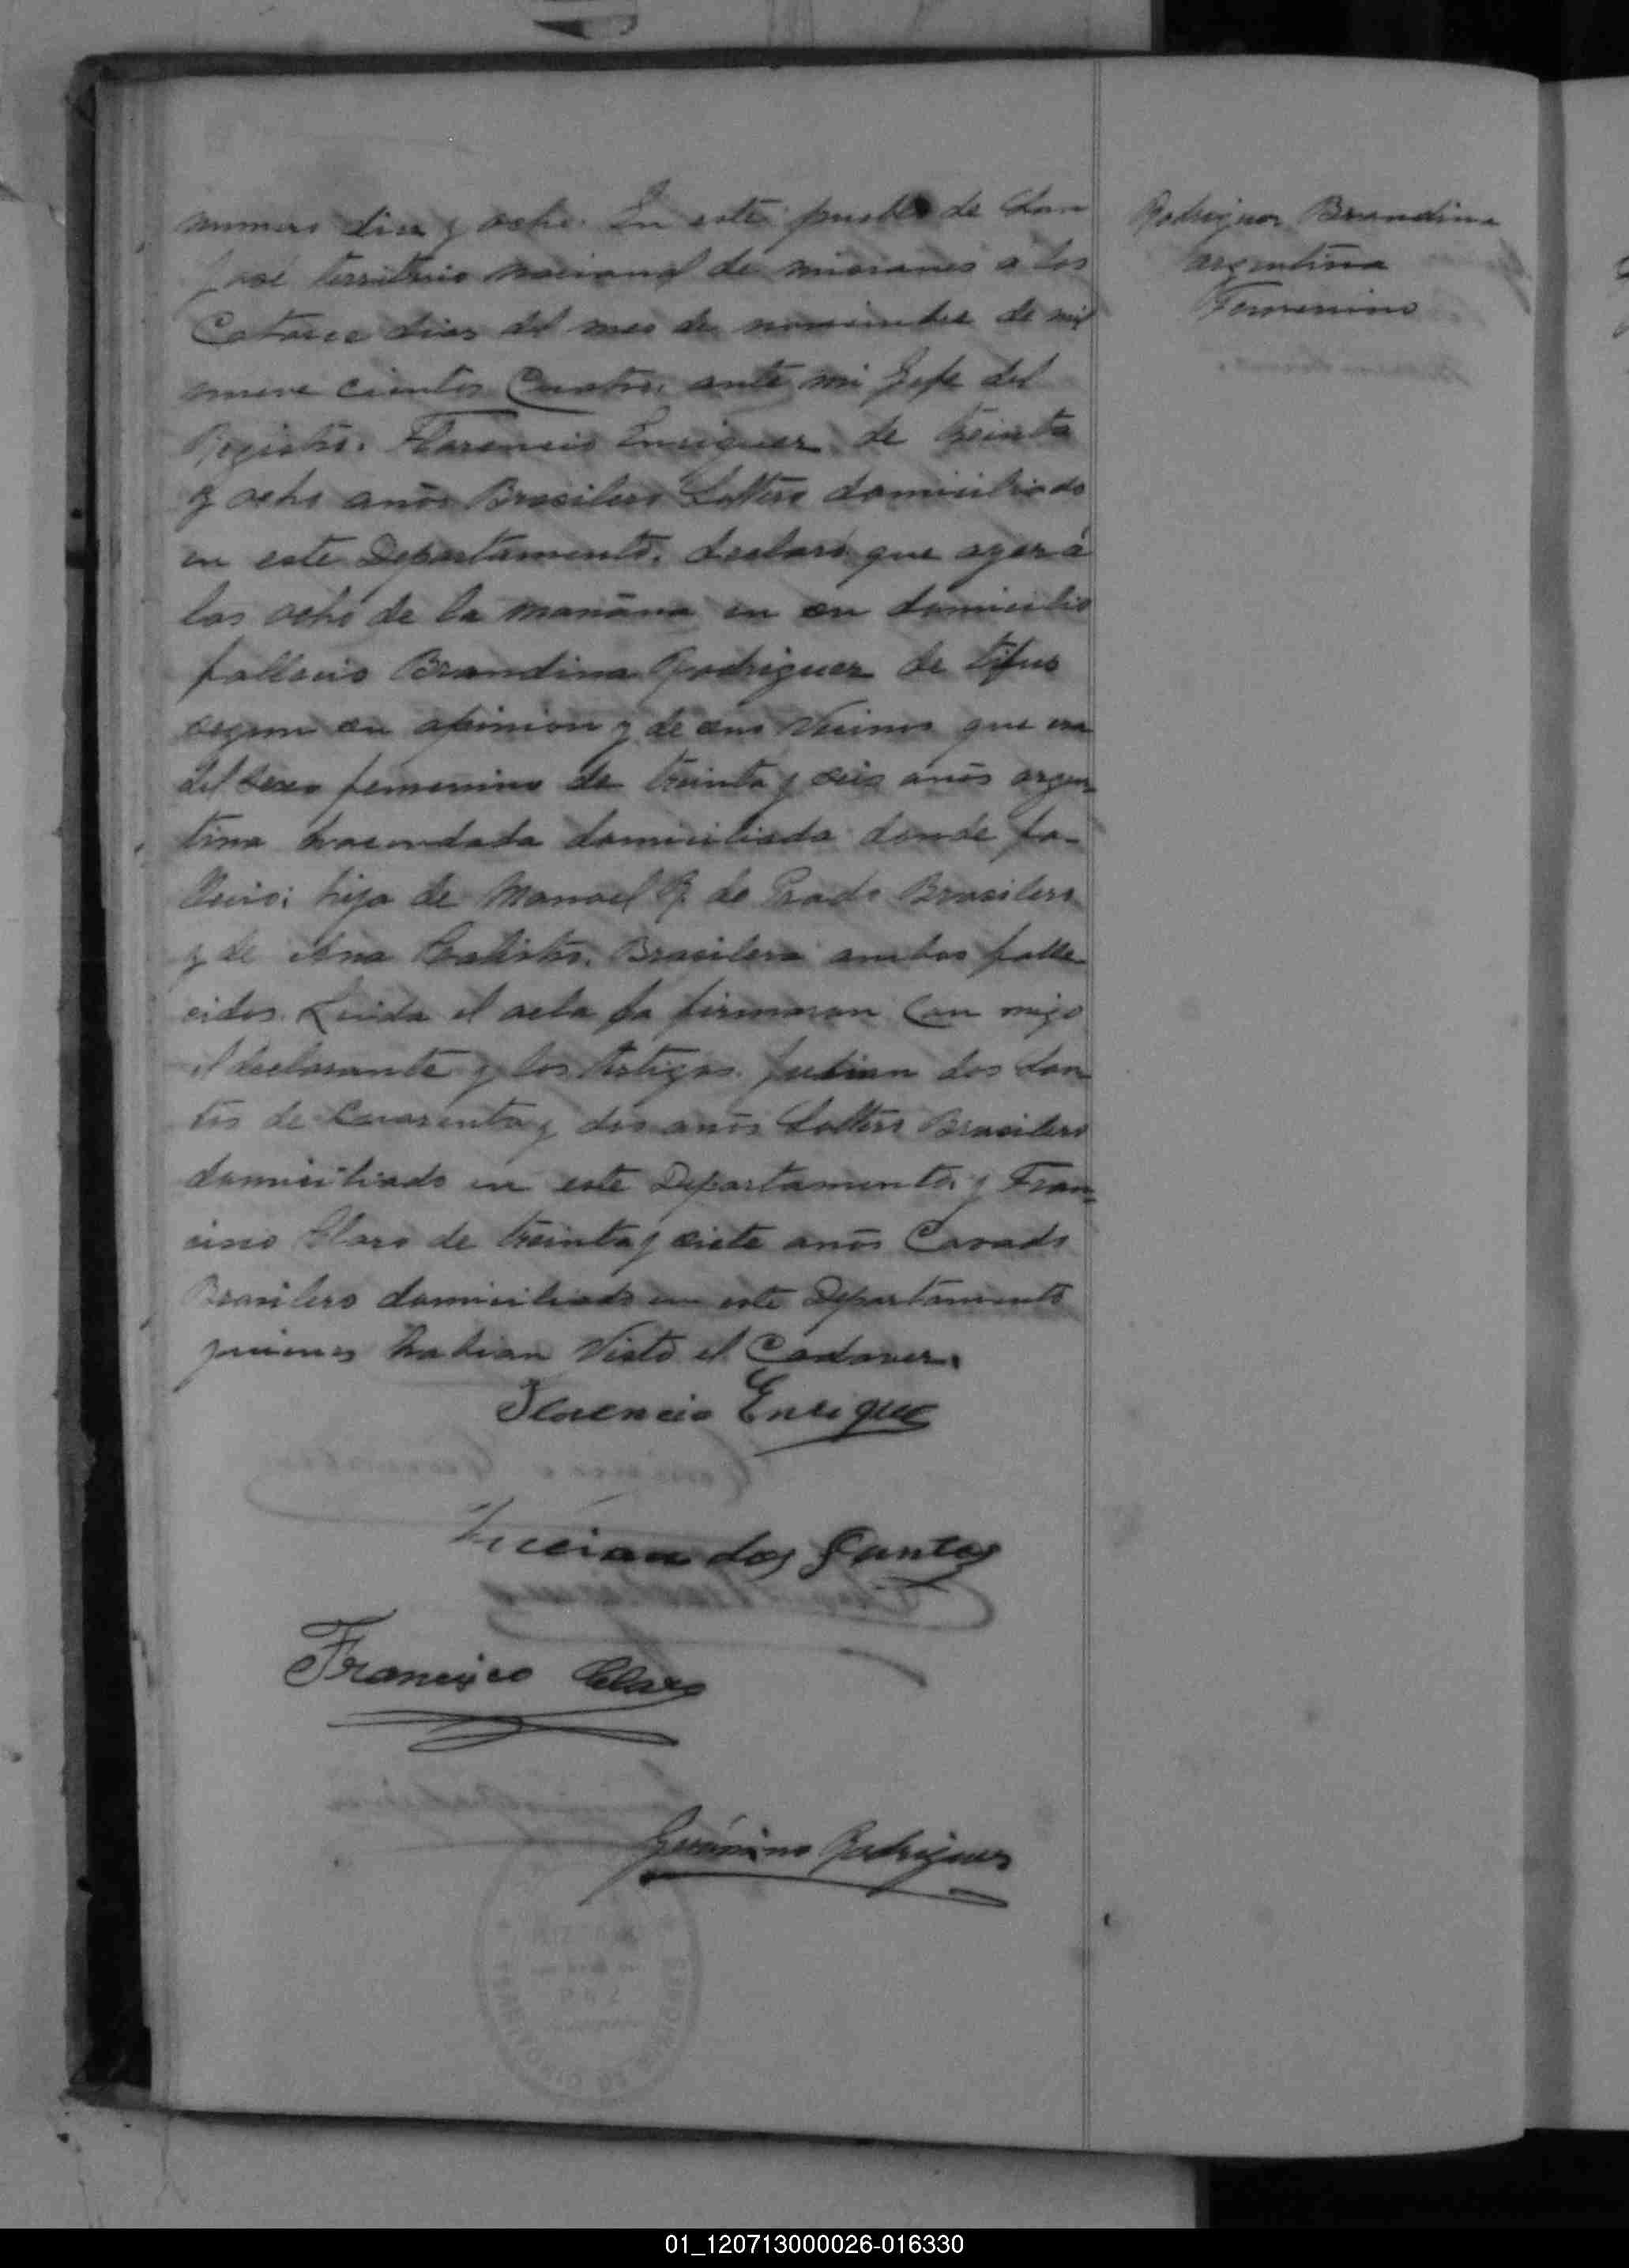 numero dies y ocho. En este pueblo de San
José territorio nacional de misiones a los
Catorce dias del mes de noviembre de mil
nueve cientos Cuatro. ante mi Jefe del
Registro. Florencio Enriquez de treinta
y ocho años Brasilero Soltero domiciliado
en este Departamento. declaro que ayer á
las ocho de la mañana en su domicilio
fallecio Brandina Rodriguez de tifus
segun su opinion y de sus vecinos que era
del sexo femenino de treinta y seis años argen-
tina domiciliada donde fa-
llecio; hija de Manoel R. de Prado Brasilero
y de Ana Brasilera ambos falle-
cidos. Leida el acta la firmaron Con migo
el declarante y los testigos. dos San-
tos de Cuarenta y dos años Soltero Brasilero
domiciliado en este Departamento, y Fran-
cisco Claro de treinta y siete años Casado
Brasilero domiciliado en este Departamento
quienes habian Visto el Cadaver.
Florencio Enriquez
dos Santos
Francisco Claro
Gerónimo Rodriguez
Rodriguez Brandina
argentina
Femenino
01_120713000026-016330